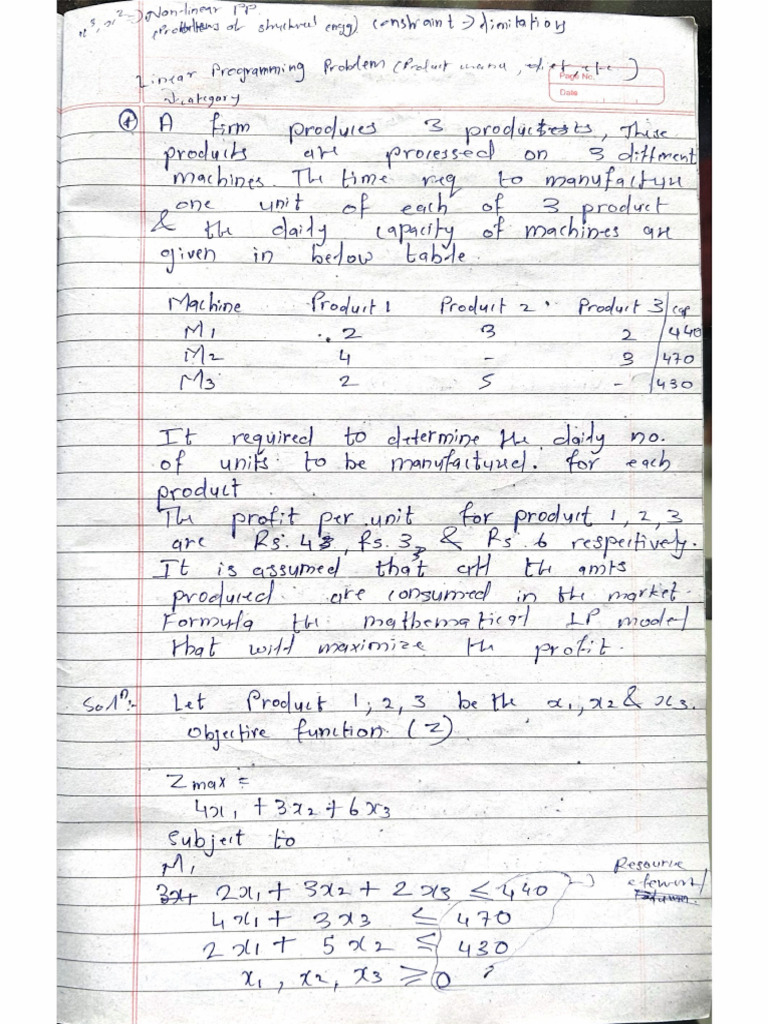 x³, x² → Non-linear PP
(Problems of structural engg) constraint → limitation
Linear Programming Problem (Product manu, diet, etc)
Page No.
Date
category
① A firm produces 3 products, These
products are processed on 3 different
machines. The time req to manufacture
one unit of each of 3 product
& the daily capacity of machines are
given in below table.
Machine Product 1 Product 2 Product 3 cap
M1 2 3 2 440
M2 4 - 3 470
M3 2 5 - 430
It required to determine the daily no.
of units to be manufactured. for each
product
The profit per unit for product 1, 2, 3
are Rs. 4, Rs. 3, & Rs. 6 respectively.
It is assumed that all the amts
produced are consumed in the market.
Formula the mathematical LP model
that will maximize the profit.
Solⁿ:- Let Product 1, 2, 3 be the x1, x2 & x3.
Objective function (Z)
Zmax =
4x1 + 3x2 + 6x3
Subject to
M1
2x1 + 3x2 + 2x3 ≤ 440
Resource
4x1 + 3x3 ≤ 470
2x1 + 5x2 ≤ 430
x1, x2, x3 ≥ 0